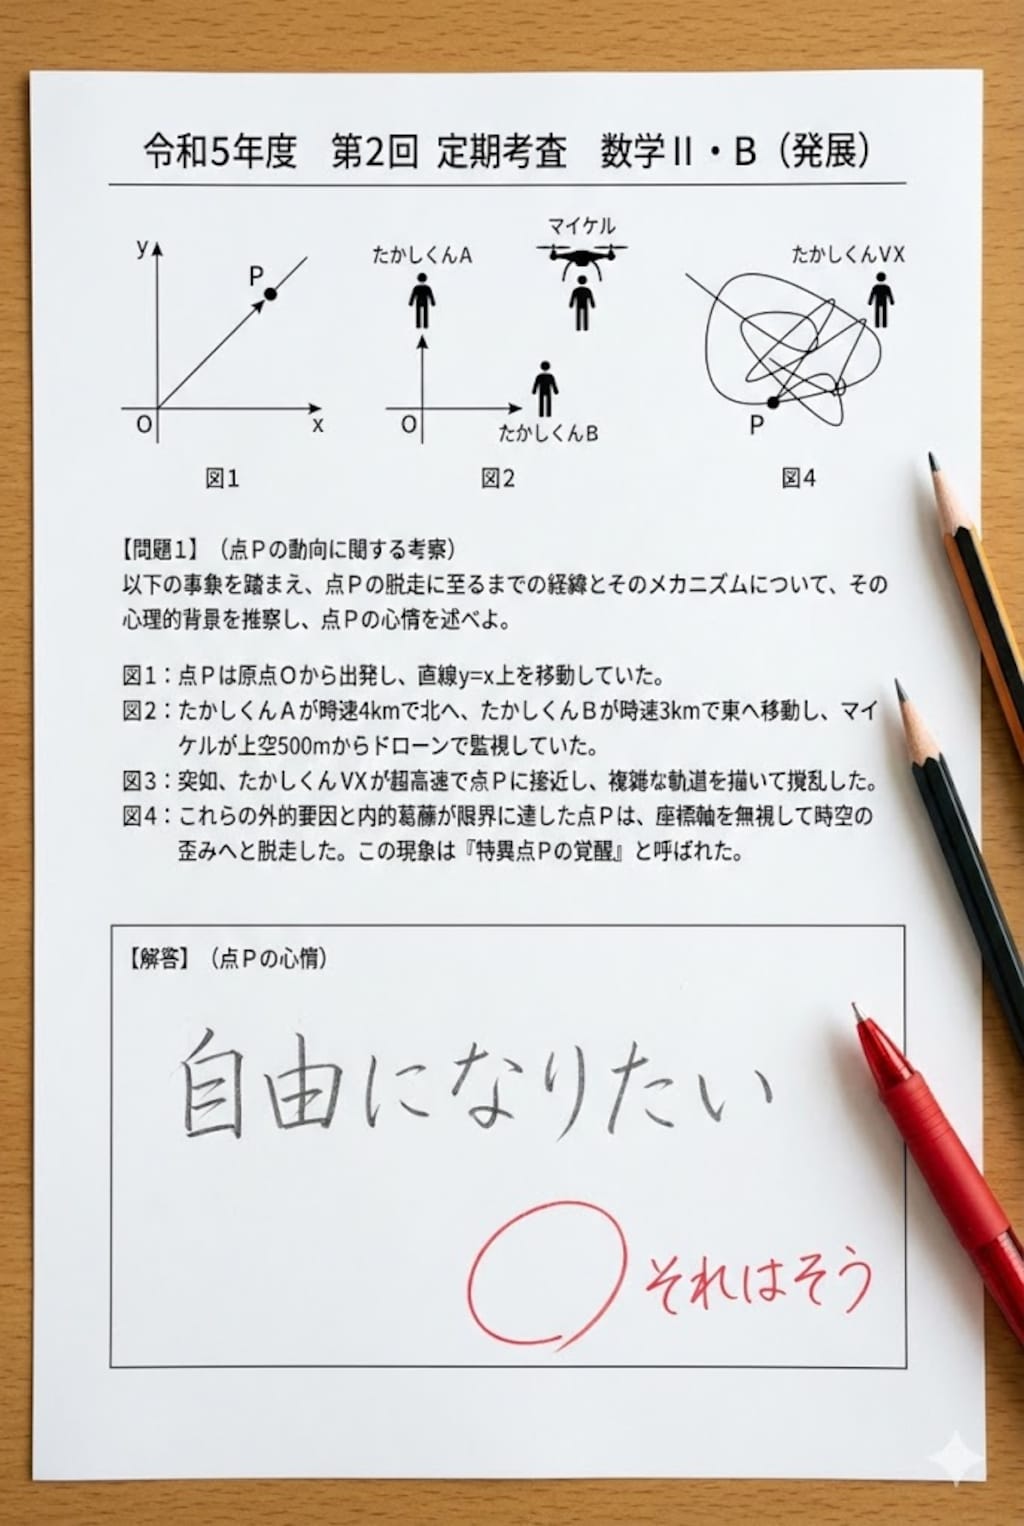 令和5年度 第2回 定期考査 数学Ⅱ・B（発展）
y
P
O
x
図1
たかしくんA
マイケル
O
たかしくんB
図2
たかしくんVX
P
図4
【問題1】（点Pの動向に関する考察）
以下の事象を踏まえ、点Pの脱走に至るまでの経緯とそのメカニズムについて、その
心理的背景を推察し、点Pの心情を述べよ。
図1：点Pは原点Oから出発し、直線y=x上を移動していた。
図2：たかしくんAが時速4kmで北へ、たかしくんBが時速3kmで東へ移動し、マイ
ケルが上空500mからドローンで監視していた。
図3：突如、たかしくんVXが超高速で点Pに接近し、複雑な軌道を描いて撹乱した。
図4：これらの外的要因と内的葛藤が限界に達した点Pは、座標軸を無視して時空の
歪みへと脱走した。この現象は『特異点Pの覚醒』と呼ばれた。
【解答】（点Pの心情）
自由になりたい
それはそう